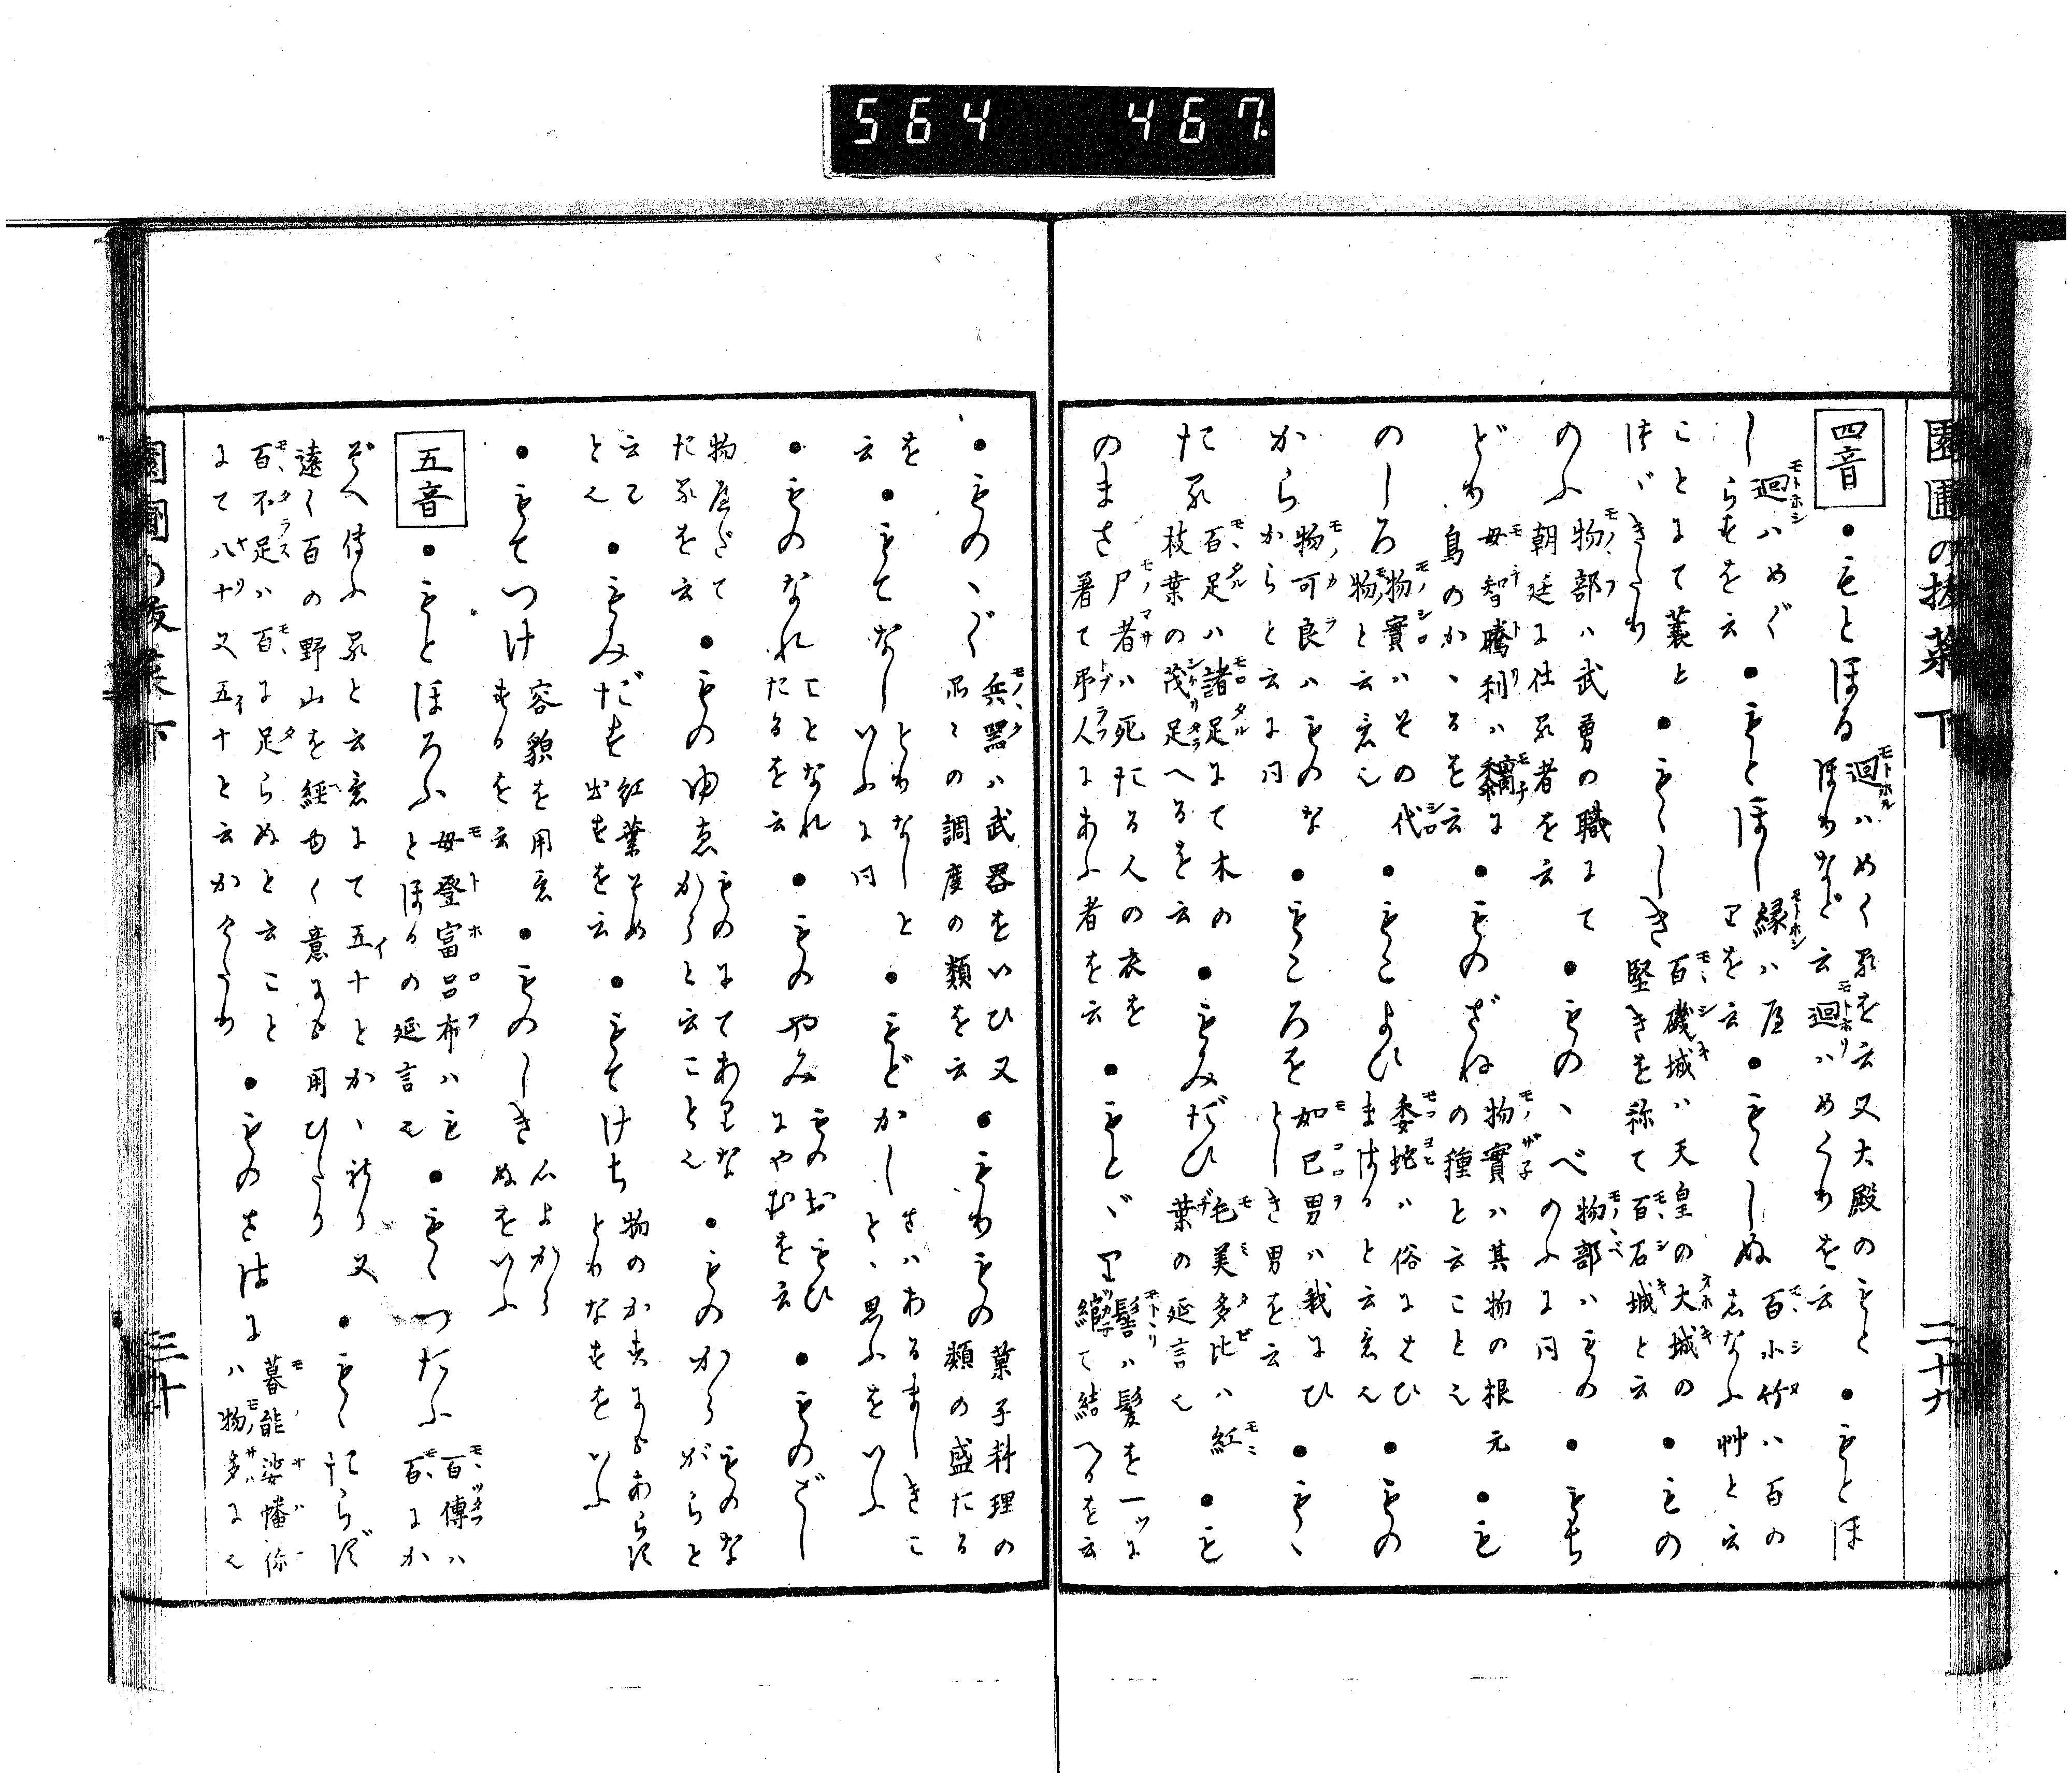 564 467
園圃の抜菜 下 二十九
四音 ●もとほる 廻ハめくるを云又大殿のもと ●もとほ
ほりなど云廻ハめくりを云
し 廻ハめぐらすを云 ●もとほし 縁ハ屋 ●もゝしぬ 百小竹ハ百の
しなふ艸と云
ことにて簑と ●もゝしき 百磯城ハ天皇の大城の ●もの
堅きを称て百石城と云
のふ 物部ハ武勇の職にて ●ものゝべ 物部ハもの ●もち
朝廷に仕る者を云 のふに同
どり 母智騰利ハ黐に ●ものざね 物實ハ其物の根元 ●も
鳥のかゝるを云 の種と云こと也
のしろ 物實ハその代 ●もこよひ 委蛇ハ俗にはひ ●もの
物と云意也 まはると云意也
から 物可良ハものな ●もころを 如己男ハ我にひ ●もゝ
からと云に同 としき男を云
たる 百足ハ諸足にて木の ●もみだひ 毛美多比ハ紅 ●も
枝葉の茂足へるを云 葉の延言也
のまさ 尸者ハ死たる人の衣を ●もとゞり 髻ハ髪を一ツに
著て弔人にあふ者を云 綰て結へるを云
●ものゝぐ 兵器ハ武器をいひ又 ●もりもの 菓子料理の
品々の調度の類を云 類の盛たる
を云 ●もてなし とりなしと ●もどかし さハあるましきこ
いふに同 とゝ思ふをいふ
●ものなれ ことなれ ●ものやみ ものおもひ ●ものごし
たるを云 にやむを云
物屋ごて ●ものゆゑ ものにてあるな ●ものからがら ものな
たるを云 からと云こと也 がらと
云て ●もみだす 紅葉そめ ●もてけち 物のかずにもあらず
と也 出すを云 とりなすをいふ
●もてつけ 容貌を用意 ●ものしき 心よから
するを云 ぬをいふ
五音 ●もとほろふ 母登富呂布ハも ●もゝつたふ 百傳ハ
とほるの延言也 百にか
ぞへ傳ふると云意にて五十とかゝれり又 ●もゝたらず
遠く百の野山を經ゆく意にも用ひたり
百不足ハ百に足らぬと云こと ●ものさはに 暮能娑幡你
にて八十又五十と云かゝりたり ハ物多に也
園圃の抜菜 下 三十